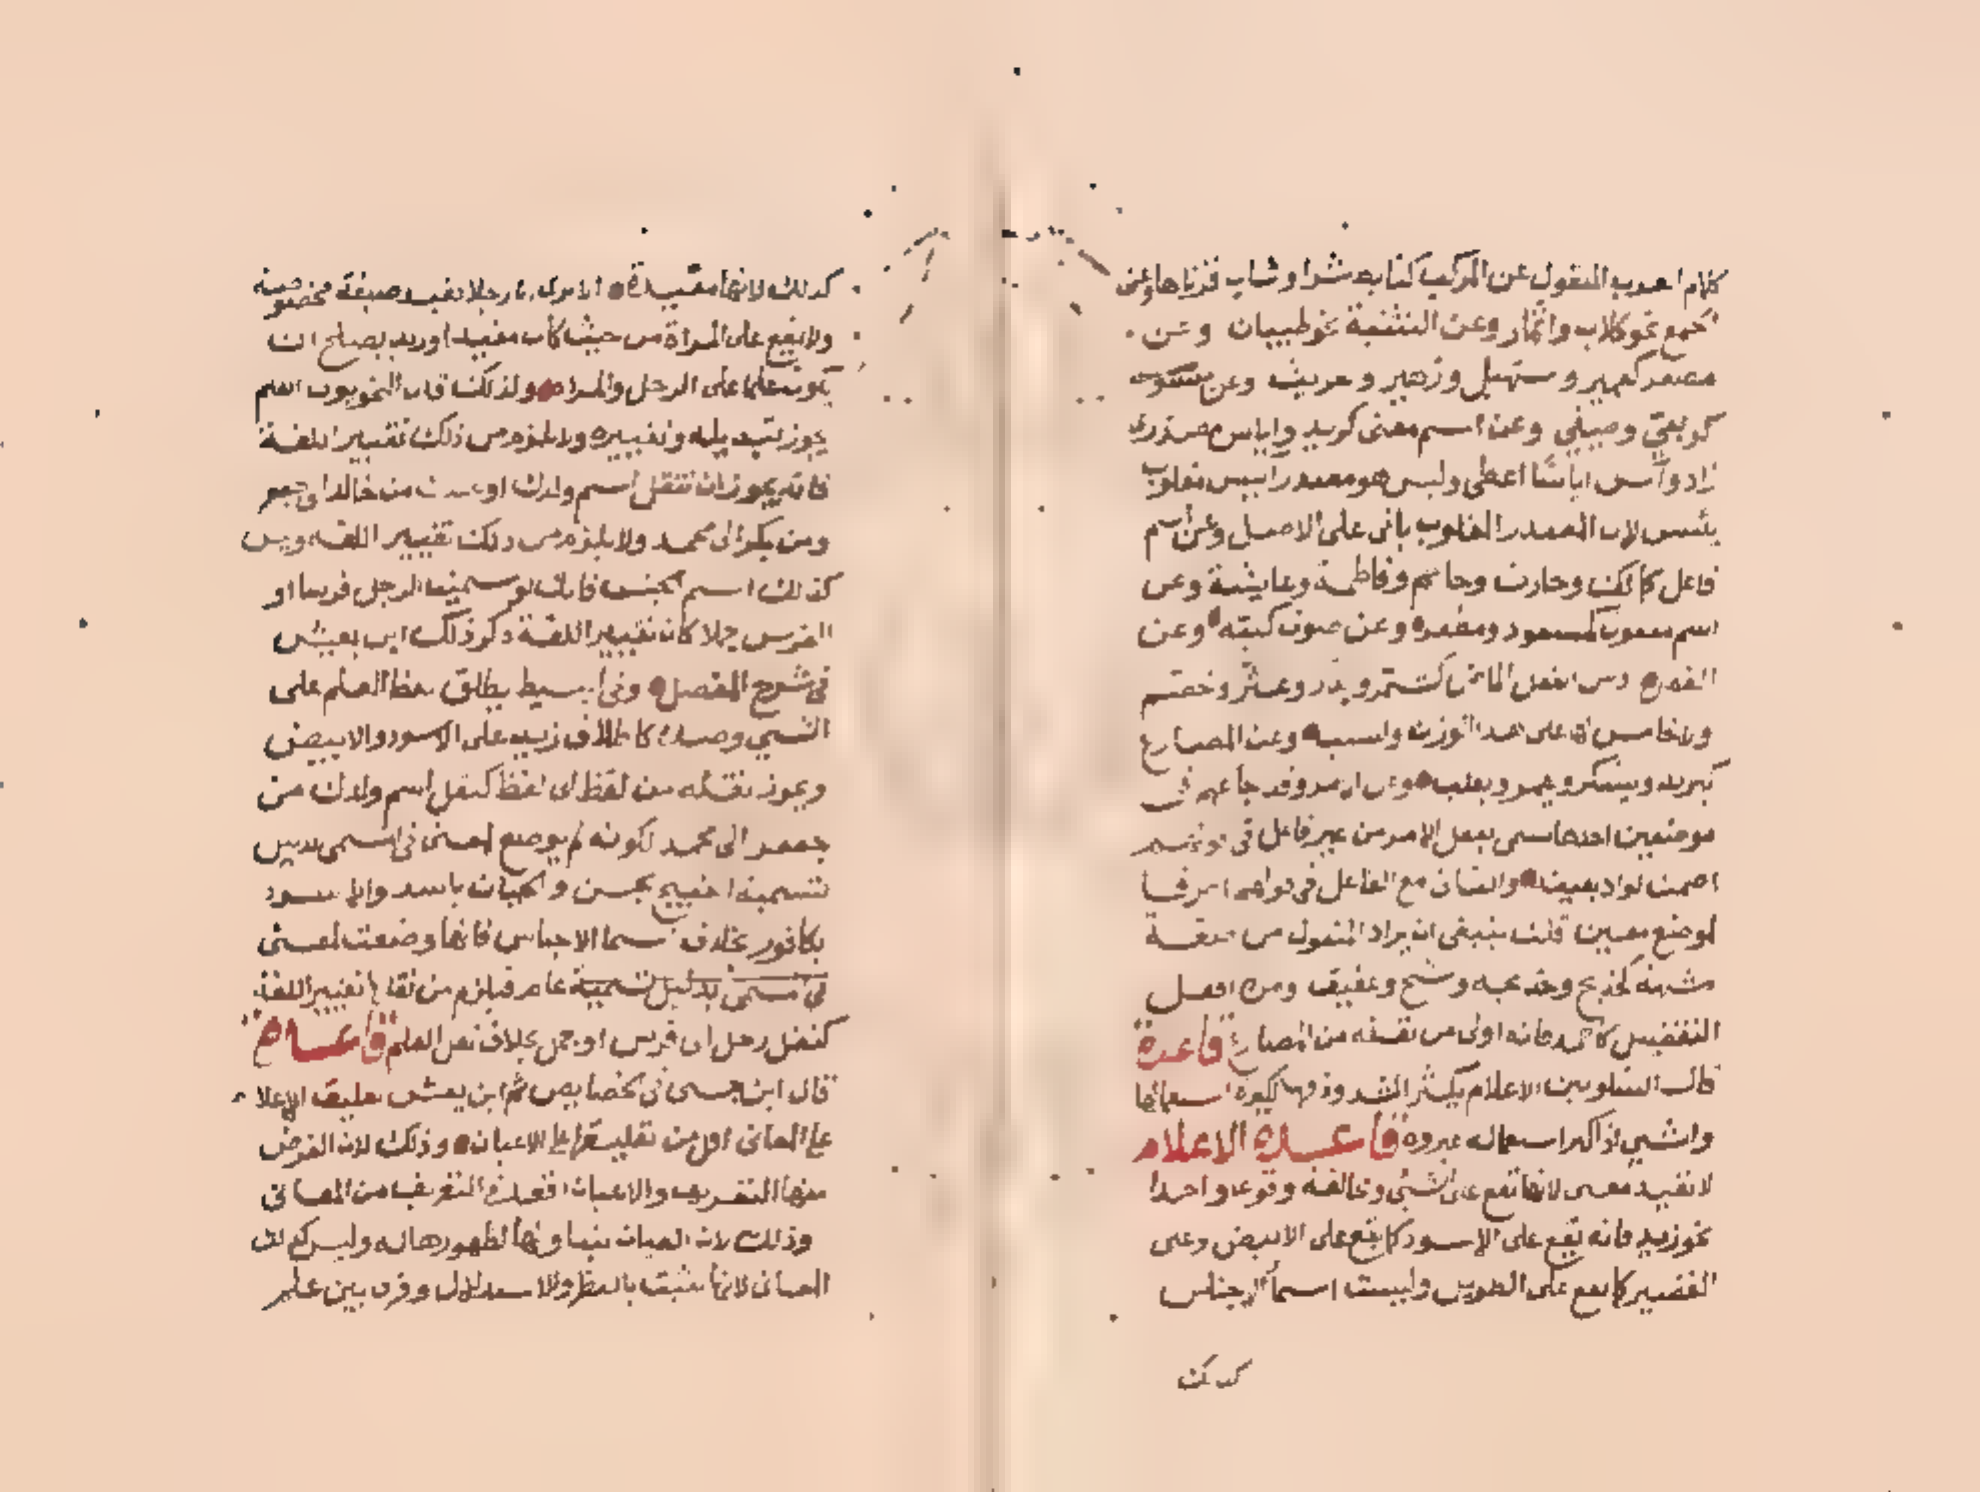 كلام العرب المنقول عن المركب كتابط شرا وشاب قرناها وعن
الجمع نحو كلاب وانمار وعن التثنية نحو ظبيان وعن
مصغر كعمير وسهيل وزهير وحريث وعن منسوب
كربعي وصيفي وعن اسم معنى كزيد واياس مصدري
زاد وآس اياسا اعطى وليس هو مصدر ايس مقلوب
يئس لان المصدر المقلوب ياتي على الاصل وعن اسم
فاعل كمالك وحارث وحاتم وفاطمة وعايشة وعن
اسم مفعول كمسعود ومظفر وعن صوت كببه وعن
الفعل الماضي كشمر وبذر وعثر وخضم
ولا خامس لها على هذا الوزن وعن المضارع
كيزيد ويشكر ويعمر وتغلب وعن الامر وقد جا عنهم في
موضعين احدهما سمى بفعل الامر من غير فاعل في قولهم
اصمت لواد بعينه والثاني مع الفاعل في قولهم اطرقا
لموضع معين قلت ينبغي ان يزاد المنقول من صفة
مشبهة كخديج وخديجه وشيخ وعفيف ومن افعل
التفضيل كاحمد فانه اولى من نقله من المضارع قاعدة
قال الشلوبين الاعلام يكثر الشذوذ فيها لكثرة استعمالها
والشي اذا كثر استعماله غيروه قاعدة الاعلام
لا تفيد معنى لانها تقع على الشي ومخالفه وقوعا واحدا
نحو زيد فانه يقع على الاسود كما يقع على الابيض وعلى
القصير كما يقع على الطويل وليست اسما الاجناس
كذلك
كذلك لانها مفيدة الا ترى ان رجلا يفيد صيغة مخصوصة
ولا يقع على المراة من حيث كان مفيدا وزيد يصلح ان
يكون علما على الرجل والمراة ولذلك قال النحويون العلم
يجوز تبديله وتغييره ولا يلزم من ذلك تغيير اللغة
فانه يجوز ان تنقل اسم ولدك او عبدك من خالد الى جعفر
ومن بكر الى محمد ولا يلزم من ذلك تغيير اللغة وليس
كذلك اسم الجنس فانك لو سميت الرجل فرسا او
الفرس جملا كان تغيير اللغة ذكر ذلك ابن يعيش
في شرح المفصل وفي البسيط يطلق لفظ العلم على
الشي وضده كاطلاق زيد على الاسود والابيض
ويجوز نقله من لفظ الى لفظ كنقل اسم ولدك من
جعفر الى محمد لكونه لم يوضع لمعنى في المسمى بدليل
تسمية القبيح بحسن والجبان باسد والاسود
بكافور بخلاف اسما الاجناس فانها وضعت لمعنى
في مسمى بدليل تسمية عام فيلزم من نقلها تغيير اللغة
كنقل رجل الى فرس او جمل بخلاف نقل العلم قاعدة
قال ابن جني في الخصايص ثم ابن يعيش تعليق الاعلام
على المعاني اقل من تعليقها على الاعيان وذلك لان الغرض
منها التعريف والاعيان اقعد في التعريف من المعاني
وذلك لان العيان يتناولها لظهورها له وليس كذلك
المعاني لانها تثبت بالنظر والاستدلال وفرق بين علم